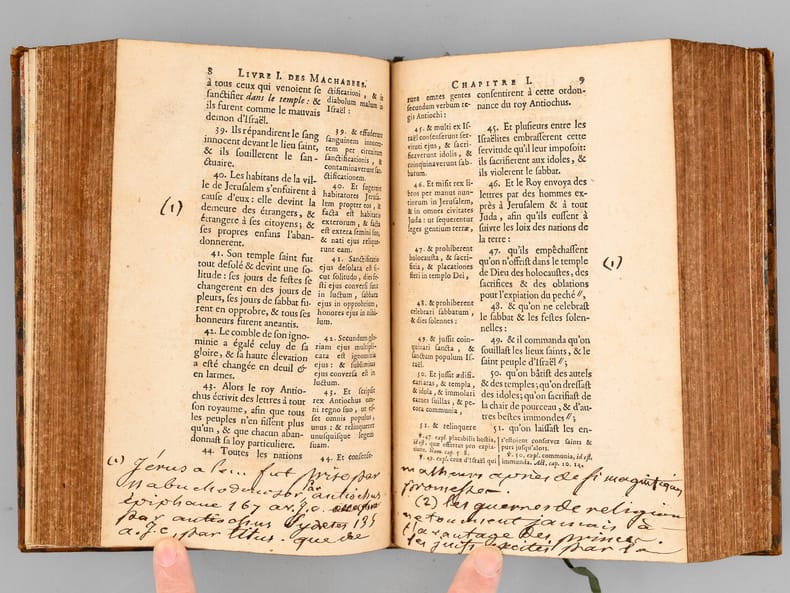 8 LIVRE I. DES MACHABE'ES.
à tous ceux qui venoient se
sanctifier dans le temple: &
ils furent comme le mauvais
demon d'Israël.
39. Ils répandirent le sang
innocent devant le lieu saint,
& ils souillerent le san-
ctuaire.
40. Les habitans de la vil-
le de Jerusalem s'enfuirent à
cause d'eux: elle devint la
demeure des étrangers, &
étrangere à ses citoyens; &
ses propres enfans l'aban-
donnerent.
41. Son temple saint fut
tout desolé & devint une so-
litude: ses jours de festes se
changerent en des jours de
pleurs, ses jours de sabbat fu-
rent en opprobre, & tous ses
honneurs furent aneantis.
42. Le comble de son igno-
minie a égalé celuy de sa
gloire, & sa haute élevation
a esté changée en deuil &
en larmes.
43. Alors le roy Antio-
chus écrivit des lettres à tout
son royaume, afin que tous
les peuples n'en fissent plus
qu'un, & que chacun aban-
donnast sa loy particuliere.
44. Toutes les nations
ctificationi, & in
diabolum malum in
Israël:
39. & effuderunt
sanguinem innocen-
tem per circuitum
sanctificationis, &
contaminaverunt san-
ctificationem.
40. Et fugerunt
habitatores Jerusa-
lem propter eos, &
facta est habitatio
exterorum, & facta
est extera semini suo,
& nati ejus relique-
runt eam.
41. Sanctificatio
ejus desolata est si-
cut solitudo, dies fe-
sti ejus conversi sunt
in luctum, sabbata
ejus in opprobrium,
honores ejus in nihi-
lum.
42. Secundum glo-
riam ejus multipli-
cata est ignominia
ejus: & sublimitas
ejus conversa est in
luctum.
43. Et scripsit
rex Antiochus om-
ni regno suo, ut es-
set omnis populus,
unus: & relinqueret
unusquisque legem
suam.
44. Et consense-
(1)
(1) Jérusalem fut prise par
nabuchodonosor, par antiochus
épiphane 167 av. J.C.
par antiochus Sydetes 135
a. J.C, par titus. que de
CHAPITRE I. 9
runt omnes gentes
secundum verbum re-
gis Antiochi:
45. & multi ex Is-
raël consenserunt ser-
vituti ejus, & sacri-
ficaverunt idolis, &
coinquinaverunt sab-
batum.
46. Et misit rex li-
bros per manus nun-
tiorum in Jerusalem,
& in omnes civitates
Juda: ut sequerentur
leges gentium terræ,
47. & prohiberent
holocausta, & sacri-
ficia, & placationes
fieri in templo Dei,
48. & prohiberent
celebrari sabbatum,
& dies solennes:
49. & jussit coin-
quinari sancta, &
sanctum populum Is-
raël.
50. Et jussit ædifi-
cari aras, & templa,
& idola, & immolari
carnes suillas, & pe-
cora communia,
51. & relinquere
consentirent à cette ordon-
nance du roy Antiochus.
45. Et plusieurs entre les
Israëlites embrasserent cette
servitude qu'il leur imposoit:
ils sacrifierent aux idoles, &
ils violerent le sabbat.
46. Et le Roy envoya des
lettres par des hommes ex-
près à Jerusalem & à tout
Juda, afin qu'ils eussent à
suivre les loix des nations de
la terre:
47. qu'ils empêchassent
qu'on n'offrist dans le temple
de Dieu des holocaustes, des
sacrifices & des oblations
pour l'expiation du peché //,
48. & qu'on ne celebrast
le sabbat & les festes solen-
nelles:
49. & il commanda qu'on
souillast les lieux saints, & le
saint peuple d'Israël //;
50. qu'on bâtist des autels
& des temples; qu'on dressast
des idoles; qu'on sacrifiast de
la chair de pourceau, & d'au-
tres bestes immondes //;
51. qu'on laissast les en-
(1)
℣. 47. expl. placabilis hostia,
id est,
Num. cap. 5. 8.
℣. 49. expl. ceux d'Israël qui
s'estoient conservez saints &
purs jusqu'alors.
℣. 50. expl. communia, id est,
immunda. Act. cap. 10. 14.
malheurs après de si magnifiques
promesses.
(2) les guerres de religion
ne tournent jamais à
l'avantage des princes.
les juifs excités par la